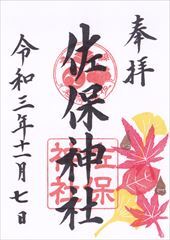 奉拝
佐保神社
佐保
神社
令和三年十一月七日